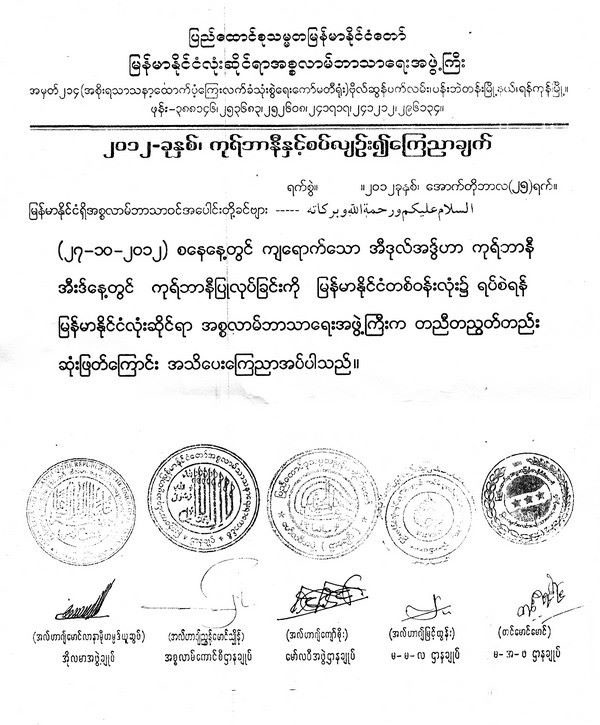 ပြည်ထောင်စုသမ္မတမြန်မာနိုင်ငံတော်
မြန်မာနိုင်ငံလုံးဆိုင်ရာအစ္စလာမ်ဘာသာရေးအဖွဲ့ကြီး
အမှတ်၂၁၄(အစိုးရသာသနာ့ထောက်ပံ့ကြေးလက်ခံသုံးစွဲရေးကော်မတီရုံး)ဗိုလ်ဆွန်ပက်လမ်း၊ပန်းဘဲတန်းမြို့နယ်၊ရန်ကုန်မြို့။
ဖုန်း-၃၈၈၁၄၆၊၂၅၃၆၈၃၊၂၅၂၆၀၈၊၂၄၁၇၁၇၊၂၄၁၂၁၂၊၂၉၆၁၃၄။
၂၀၁၂-ခုနှစ်၊ ကုရ်ဘာနီနှင့်စပ်လျဉ်း၍ကြေညာချက်
ရက်စွဲ။ ။၂၀၁၂ခုနှစ်၊ အောက်တိုဘာလ(၂၅)ရက်။
မြန်မာနိုင်ငံရှိအစ္စလာမ်ဘာသာဝင်အပေါင်းတို့ခင်ဗျား ----- السلام عليكم ورحمة الله وبركاته
(၂၇-၁၀-၂၀၁၂) စနေနေ့တွင် ကျရောက်သော အီဒုလ်အဒွ်ဟာ ကုရ်ဘာနီ
အီးဒ်နေ့တွင် ကုရ်ဘာနီပြုလုပ်ခြင်းကို မြန်မာနိုင်ငံတစ်ဝန်းလုံး၌ ရပ်စဲရန်
မြန်မာနိုင်ငံလုံးဆိုင်ရာ အစ္စလာမ်ဘာသာရေးအဖွဲ့ကြီးက တညီတညွတ်တည်း
ဆုံးဖြတ်ကြောင်း အသိပေးကြေညာအပ်ပါသည်။
(အလ်ဟာဂျ်မောင်လာနာမိုဟမ္မဒ်ယူဆွဖ်) (အလ်ဟာဂျ်ညွန့်မောင်သျှိန်) (အလ်ဟာဂျ်ကျော်စိုး) (အလ်ဟာဂျ်မြင့်ထွန်း) (တင်မောင်မောင်)
အိုလမာအဖွဲ့ချုပ် အစ္စလာမ်ကောင်စီဌာနချုပ် မော်လဝီအဖွဲ့ဌာနချုပ် မ-မ-လ ဌာနချုပ် မ-အ-ဖ ဌာနချုပ်